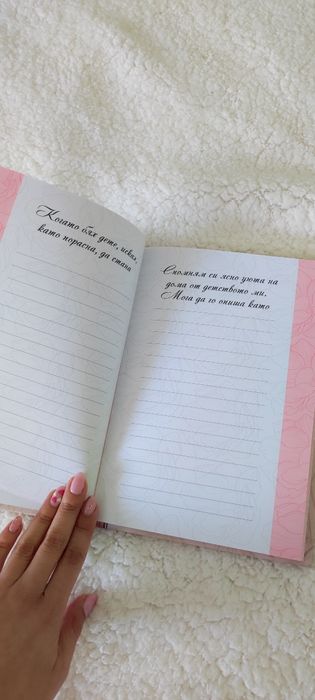 Когато бях дете, исках,
като порасна, да стана
Спомням си ясно уюта на
дома от детството ми.
Мога да го опиша като